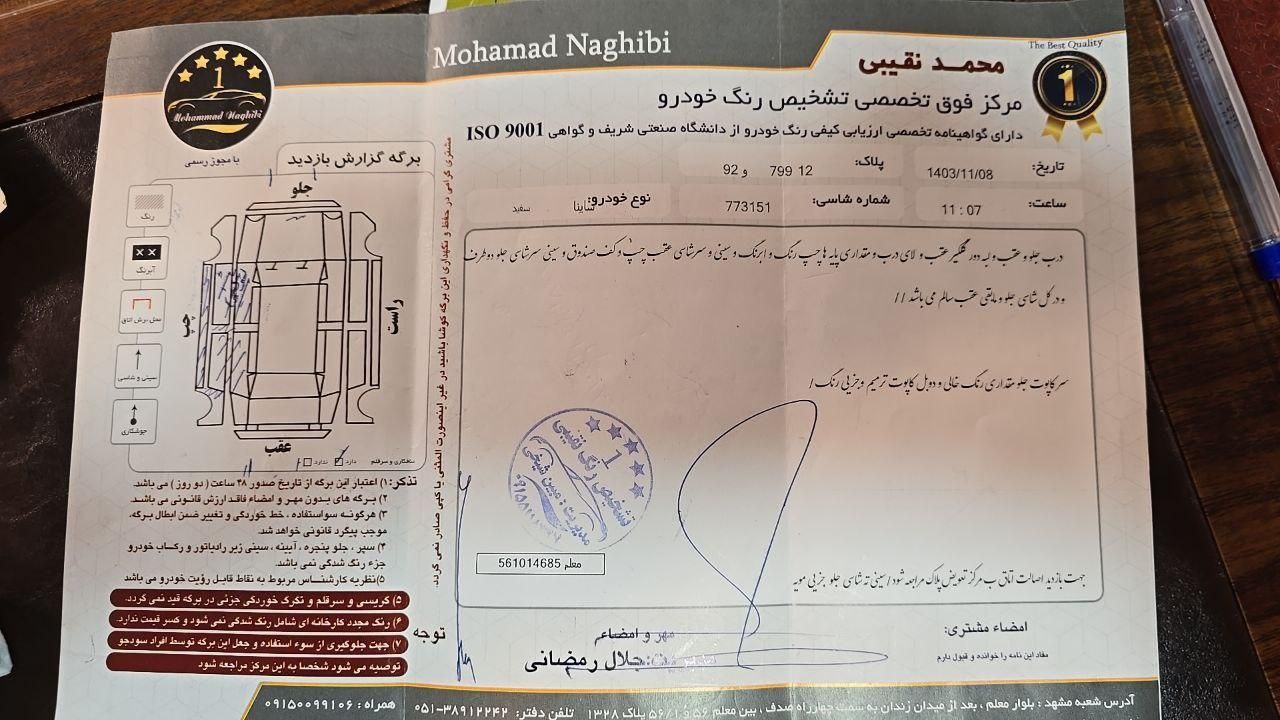 Mohamad Naghibi
The Best Quality
1
محمد نقیبی
مرکز فوق تخصصی تشخیص رنگ خودرو
دارای گواهینامه تخصصی ارزیابی کیفی رنگ خودرو از دانشگاه صنعتی شریف و گواهی ISO 9001
تاریخ: 1403/11/08
پلاک: 12 799 و 92
ساعت: 11 : 07
شماره شاسی: 773151
نوع خودرو: ساینا سفید
درب جلو و عقب و لبه دور گلگیر عقب و لای درب و مقداری پایه ها چپ رنگ و ابرنگ و سینی و سرشاسی عقب چپ و کف صندوق و سینی سرشاسی جلو دو طرف
و در کل شاسی جلو و مابقی عقب سالم می باشد //
سر کاپوت جلو مقداری رنگ خالی و دوبل کاپوت ترمیم و جزیی رنگ /
جهت بازدید اصالت اتاق ب مرکز تعویض پلاک مراجعه شود / سینی ته شاسی جلو جزیی مویه
1
تشخیص رنگ نقیبی
معلم 561014685
امضاء مشتری:
مفاد این نامه را خوانده و قبول دارم
مهر و امضاء
جلال رمضانی
مشتری گرامی در حفظ و نگهداری این برگه کوشا باشید در غیر اینصورت المثنی یا کپی صادر نمی گردد.
1
Mohammad Naghibi
با مجوز رسمی
برگه گزارش بازدید
جلو
راست
چپ
عقب
رنگ
آبرنگ
محل برش اتاق
سینی و شاسی
جوشکاری
صافکاری و سرقلم دارد ندارد
تذکر: ۱) اعتبار این برگه از تاریخ صدور ۴۸ ساعت ( دو روز ) می باشد.
۲) برگه های بدون مهر و امضاء فاقد ارزش قانونی می باشد.
۳) هرگونه سواستفاده ، خط خوردگی و تغییر ضمن ابطال برگه،
موجب پیگرد قانونی خواهد شد.
۴) سپر ، جلو پنجره ، آیینه ، سینی زیر رادیاتور و رکاب خودرو
جزء رنگ شدگی نمی باشد.
۵) نظریه کارشناس مربوط به نقاط قابل رؤیت خودرو می باشد
توجه
۵) کریسی و سرقلم و تکرگ خوردگی جزئی در برگه قید نمی گردد.
۶) رنگ مجدد کارخانه ای شامل رنگ شدگی نمی شود و کسر قیمت ندارد.
۷) جهت جلوگیری از سوء استفاده و جعل این برگه توسط افراد سودجو
توصیه می شود شخصا به این مرکز مراجعه شود
آدرس شعبه مشهد : بلوار معلم ، بعد از میدان زندان به سمت چهارراه صدف ، بین معلم ۵۶ و ۵۶/۱ پلاک ۱۳۲۸ تلفن دفتر: ۳۸۹۱۲۲۴۲-۰۵۱ همراه : ۰۹۱۵۰۰۹۹۱۰۶